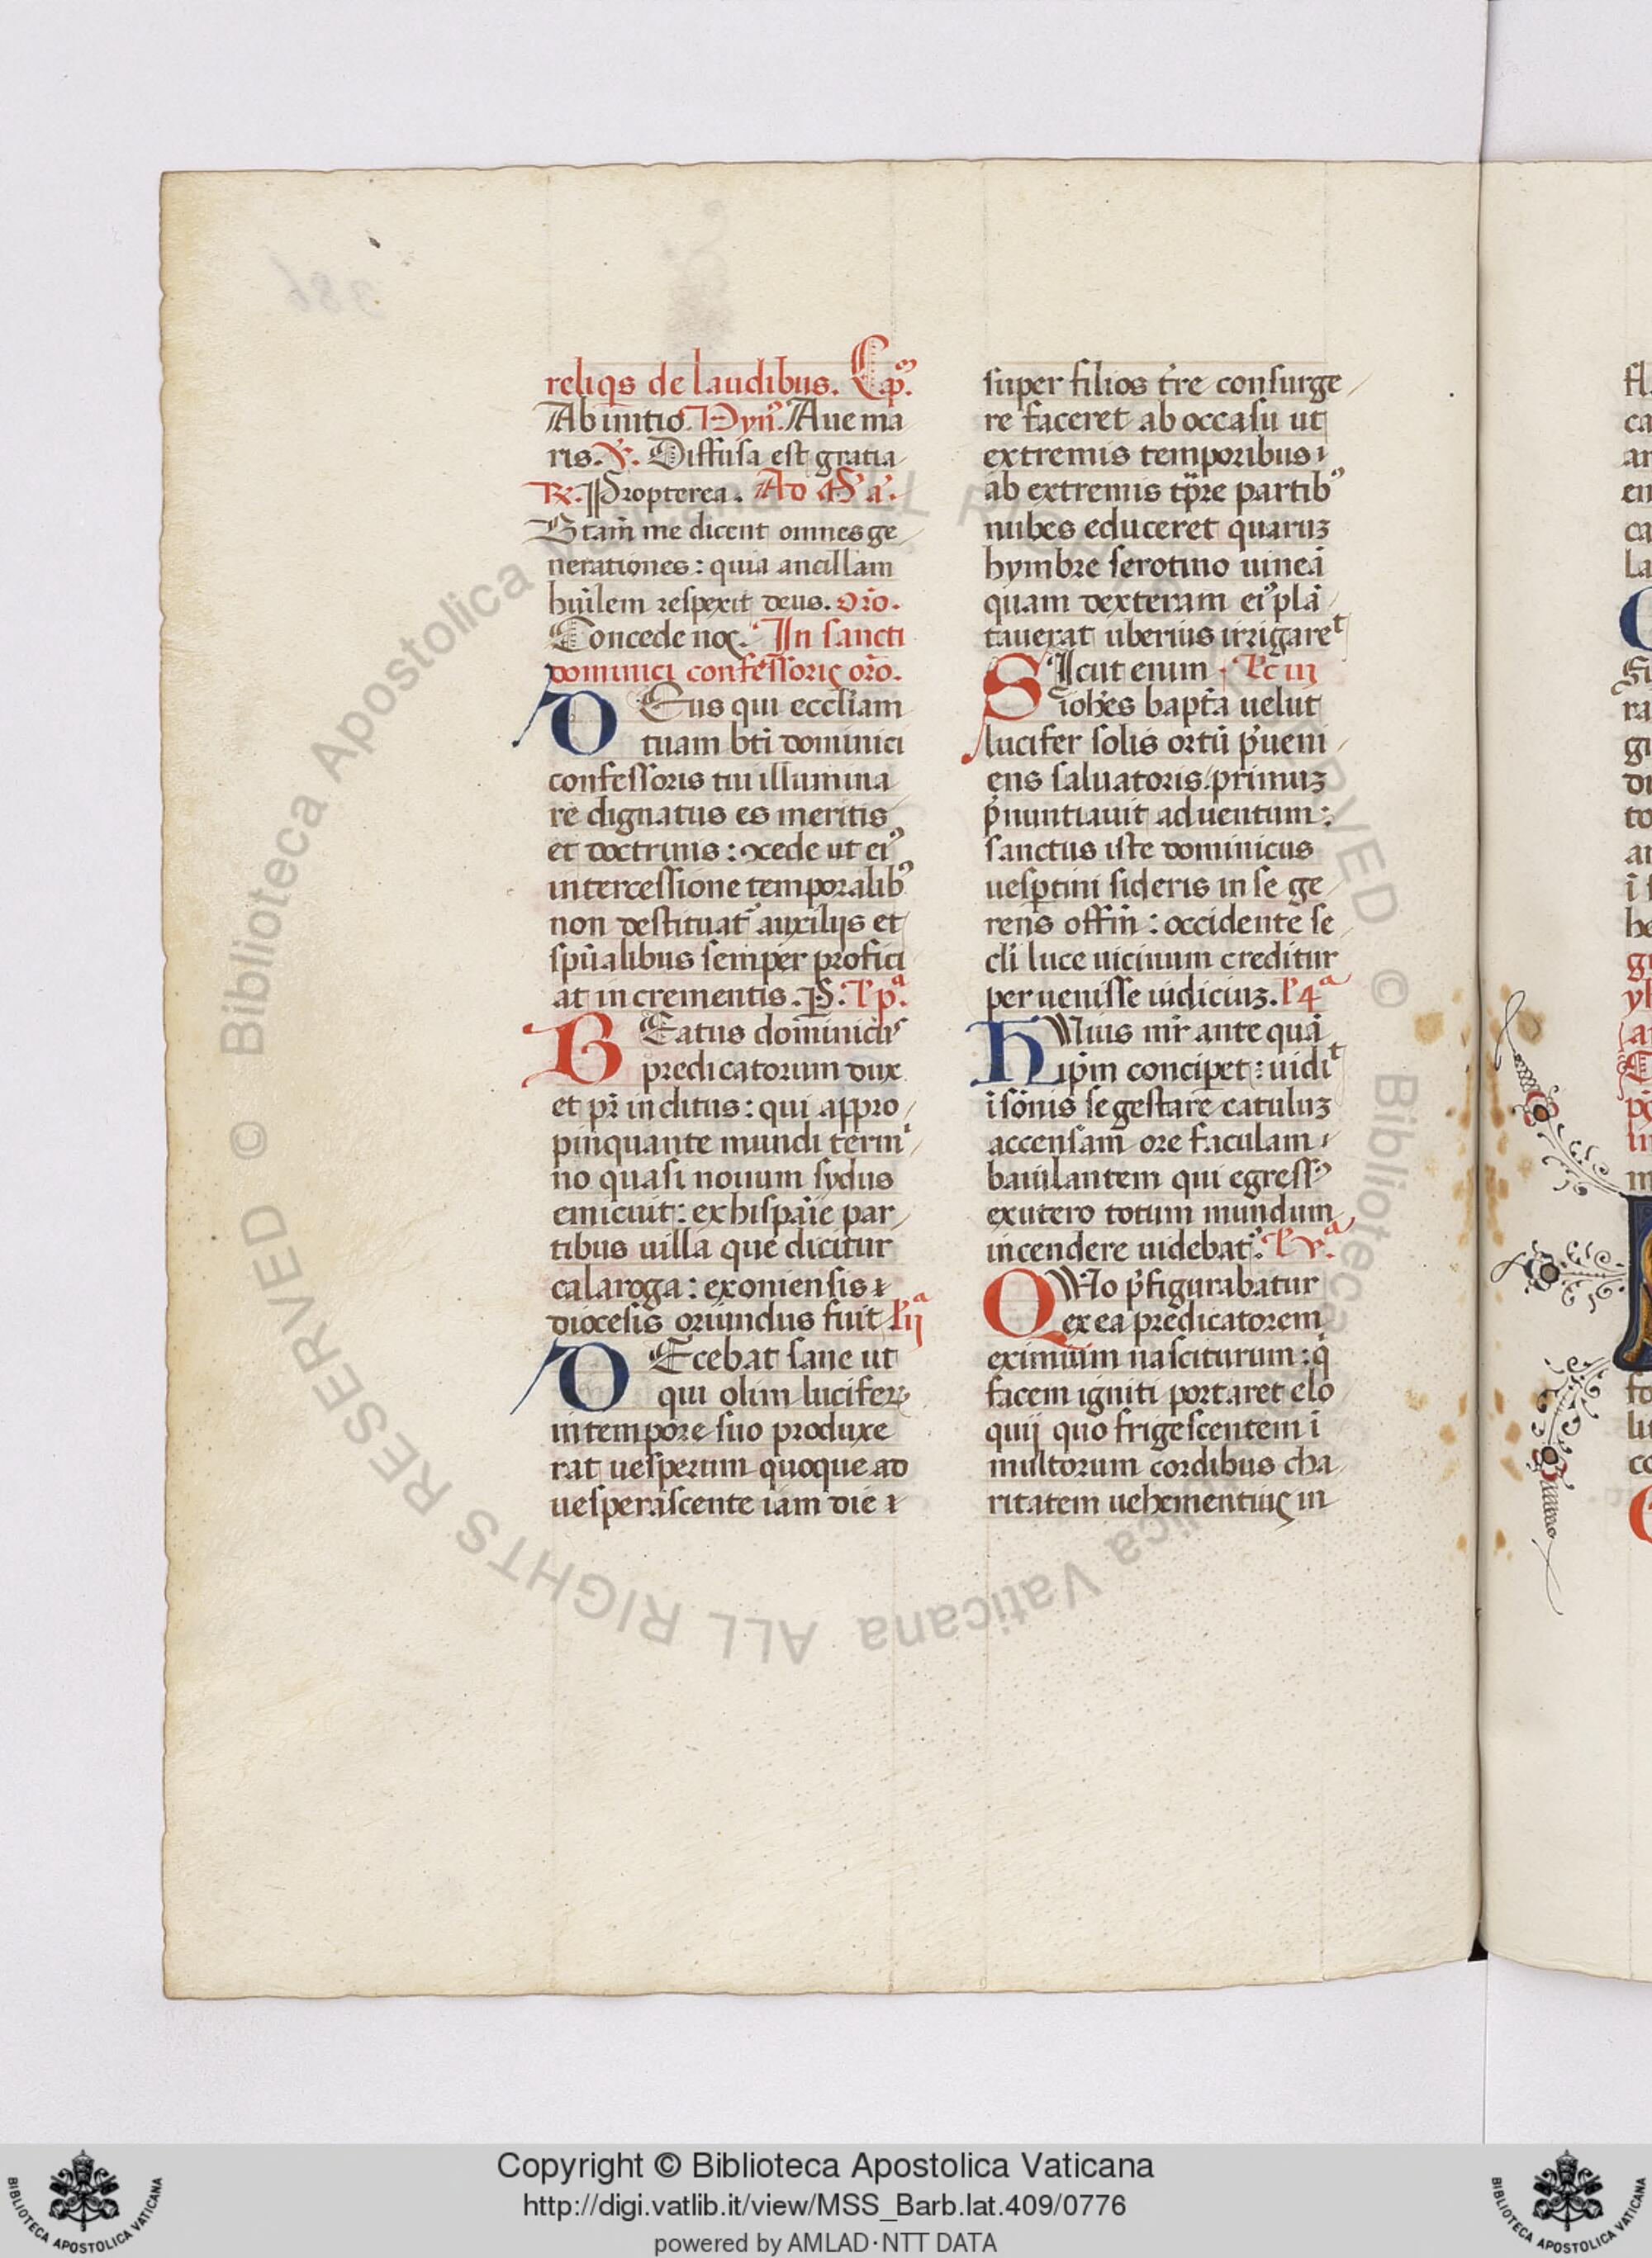 reliqs de laudibus. Cap̄.
Ab initio. Hyn̄. Aue ma
ris. ℣. Diffusa est gratia
℟. Propterea. Ad M̄ a.
Btam̄ me dicent omnes ge
nerationes: quia ancillam
hūilem respexit deus. Or̄o.
Concede nos. In sancti
dominici confessoris or̄o.
DEus qui eccl̄iam
tuam bt̄i dominici
confessoris tui illumina
re dignatus es meritis
et doctrinis: ꝯcede ut eiꝰ
intercessione temporalibꝰ
non destituat᷑ auxilijs et
sp̄ualibus semper profici
at in crementis. P. l' pᵃ.
BEatus dominicus
predicatorum dux
et pr̄ inclitus: qui appro
pinquante mundi termi
no quasi nouum sydus
emicuit: ex hispāie par
tibus uilla que dicitur
calaroga: exoniensis
diocesis oriundus fuit l' ijᵃ
DEcebat sane ut
qui olim luciferū
in tempore suo produxe
rat uesperum quoque ad
uesperascente iam die
super filios t̄re consurge
re faceret ab occasu ut
extremis temporibus
ab extremis t̄pre partibꝰ
nubes educeret quaruꝫ
hymbre serotino uineā
quam dexteram eiꝰ plā
tauerat uberius irrigaret
SIcut enim Lc iij
ioh̄es bapt̄a uelut
lucifer solis ortū p̄ueni
ens saluatoris primuꝫ
p̄nuntiauit aduentum:
sanctus iste dominicus
uesptini sideris in se ge
rens offm̄: occidente se
cl̄i luce uicinum creditur
peruenisse iudiciuꝫ. l' 4ᵃ
HUius mr̄ ante quā
ip̄m concipet: uidit
ī sōnis se gestare catuluꝫ
accensam ore faculam
baiulantem qui egressꝰ
ex utero totum mundum
incendere uidebat᷑. l' vᵃ.
QUo p̄figurabatur
ex ea predicatorem
eximium nasciturum: q̄
facem igniti portaret elo
quij quo frigescentem ī
multorum cordibus cha
ritatem uehementius in
Copyright © Biblioteca Apostolica Vaticana
http://digi.vatlib.it/view/MSS_Barb.lat.409/0776
powered by AMLAD·NTT DATA
© Biblioteca Apostolica Vaticana ALL RIGHTS RESERVED
© Biblioteca Apostolica Vaticana ALL RIGHTS RESERVED
BIBLIOTECA APOSTOLICA VATICANA
BIBLIOTECA APOSTOLICA VATICANA